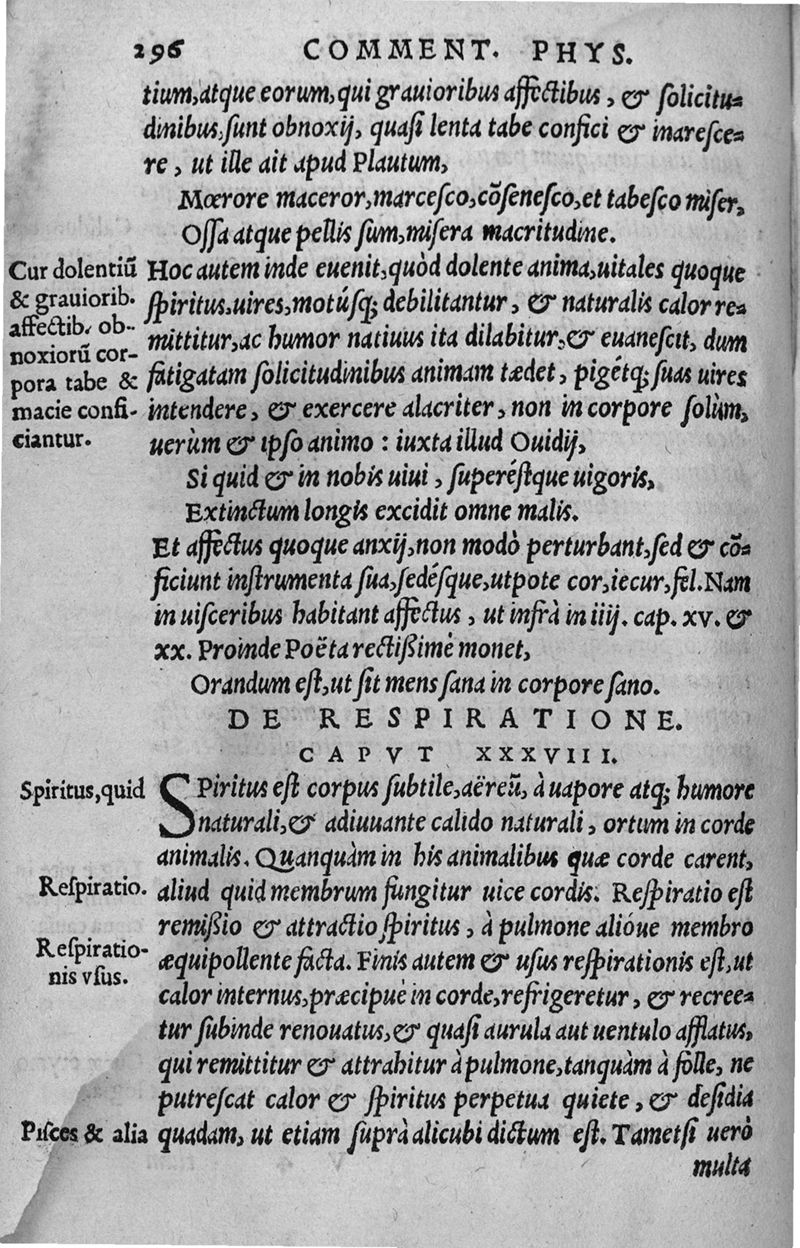 296 COMMENT. PHYS.
tium, atque eorum, qui grauioribus affectibus, & ſolicitu-
dinibus, ſunt obnoxij, quaſi lenta tabe confici & inareſce-
re, ut ille ait apud Plautum,
Mœrore maceror, marceſco, cōſeneſco, et tabeſco miſer,
Oſſa atque pellis ſum, miſera macritudine.
Cur dolentiū
& grauiorib.
affectib. ob-
noxiorū cor-
pora tabe &
macie confi-
ciantur.
Hoc autem inde euenit, quòd dolente anima, uitales quoque
ſpiritus, uires, motúſq; debilitantur, & naturalis calor re-
mittitur, ac humor natiuus ita dilabitur, & euaneſcit, dum
fatigatam ſolicitudinibus animam tædet, pigétq; ſuas uires
intendere, & exercere alacriter, non in corpore ſolùm,
uerùm & ipſo animo : iuxta illud Ouidij,
Si quid & in nobis uiui, ſuperéſtque uigoris,
Extinctum longis excidit omne malis.
Et affectus quoque anxij, non modò perturbant, ſed & cō-
ficiunt inſtrumenta ſua, ſedéſque, utpote cor, iecur, fel. Nam
in uiſceribus habitant affectus, ut infrà in iiij. cap. xv. &
xx. Proinde Poëta rectiſſimè monet,
Orandum eſt, ut ſit mens ſana in corpore ſano.
DE RESPIRATIONE.
CAPVT XXXVIII.
Spiritus, quid
SPiritus eſt corpus ſubtile, aëreū, à uapore atq; humore
naturali, & adiuuante calido naturali, ortum in corde
animalis. Quanquàm in his animalibus quæ corde carent,
Reſpiratio.
aliud quid membrum fungitur uice cordis. Reſpiratio eſt
remiſſio & attractio ſpiritus, à pulmone alióue membro
Reſpiratio-
nis vſus.
æquipollente facta. Finis autem & uſus reſpirationis eſt, ut
calor internus, præcipuè in corde, refrigeretur, & recree-
tur ſubinde renouatus, & quaſi aurula aut uentulo afflatus,
qui remittitur & attrahitur à pulmone, tanquàm à folle, ne
putreſcat calor & ſpiritus perpetua quiete, & deſidia
Piſces & alia
quadam, ut etiam ſuprà alicubi dictum eſt. Tametſi uerò
multa